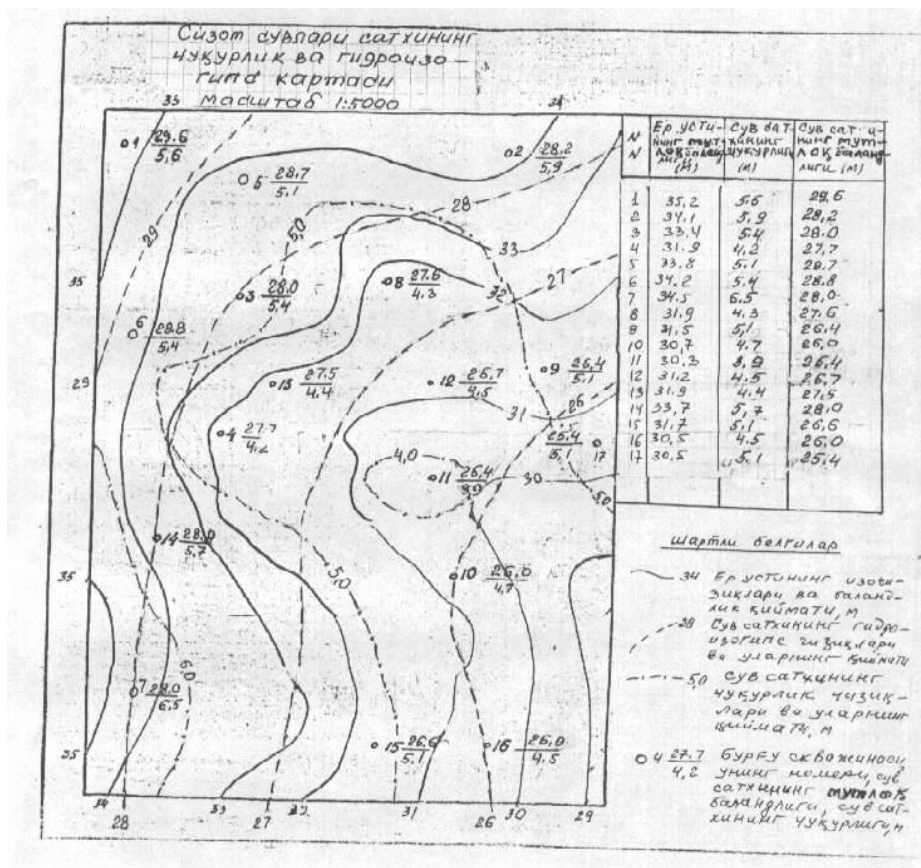 Сизот сувлари сатхининг
чуқурлик ва гидроизо-
гипс картаси
масштаб 1:5000
33
34
1 29.6
5,6
2 28.2
5,9
5 28,7
5,1
28
29
5,0
33
27
35
3 28.0
5,4
8 27.6
4,3
32
6 28.8
5,4
29
13 27.5
4.4
12 26.7
4,5
9 26,4
5,1
26
31
4 27.7
4,2
25,4
5,1
17
4,0
11 26,4
3,9
30
5,0
14 28,0
5,7
5,0
10 26,0
4.7
35
6,0
7 28.0
6,5
15 26,6
5,1
16 26,0
4,5
35
34
28
33
27
32
31
26
30
29
N
N
Ер усти-
нинг мут-
лоқ баланд-
лиги
(м)
Сув сат-
хининг
чуқурлиги
(м)
Сув сатхи-
нинг мут-
лоқ баланд-
лиги (м)
1 35,2 5,6 29,6
2 34,1 5,9 28,2
3 33,4 5,4 28.0
4 31.9 4,2 27,7
5 33,8 5,1 28.7
6 34,2 5,4 28.8
7 34,5 6,5 28,0
8 31,9 4,3 27.6
9 31,5 5,1 26.4
10 30,7 4.7 26,0
11 30,3 3,9 26,4
12 31,2 4,5 26,7
13 31,9 4,4 27,5
14 33,7 5,7 28,0
15 31,7 5,1 26,6
16 30,5 4,5 26,0
17 30,5 5,1 25,4
шартли белгилар
34 Ер устининг изоги-
зиқлари ва баланд-
лик қиймати, м
28 Сув сатхининг гидро-
изогипс чизиқлари
ва уларнинг қиймати
5,0 Сув сатхининг
чуқурлик чизиқ-
лари ва уларнинг
қиймати, м
4 27.7
4,2
Бурғу скважинаси,
унинг номери, сув
сатхининг мутлоқ
баландлиги, сув сат-
хининг чуқурлиги, м